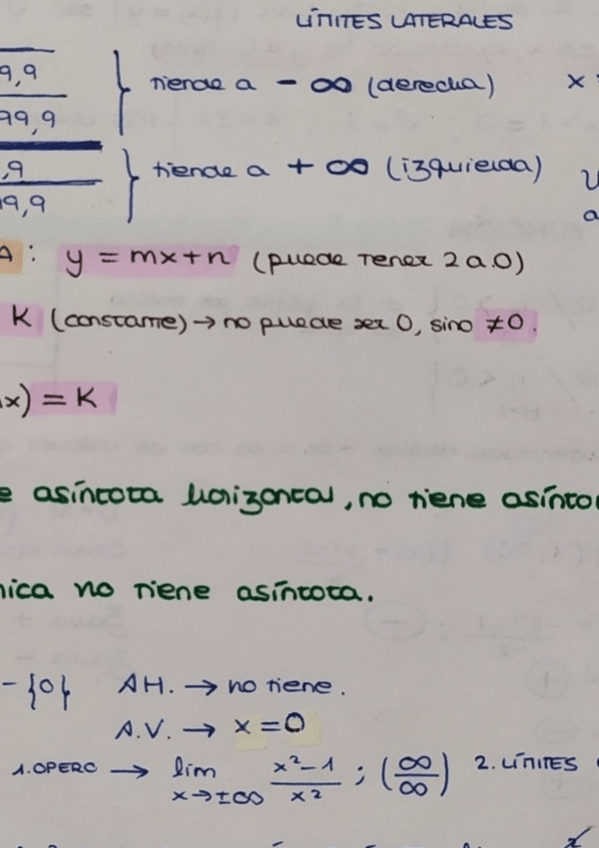 LÍMITES LATERALES
9,9 } tiende a - ∞ (derecha) x
99,9
,9 } tiende a + ∞ (izquierda)
99,9 a
A: y = mx+n (puede tener 2 a.O)
K (constante) → no puede ser 0, sino ≠0.
x) = K
e asíntota horizontal, no tiene asínto
nica no tiene asíntota.
-{0} AH. → no tiene.
A.V. → x = 0
1. OPERO → lim x→±∞ x²-1/x² ; (∞/∞) 2. LÍMITES